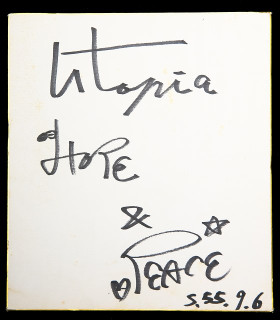 Utopia
HOPE
&
PEACE
S.55.9.6